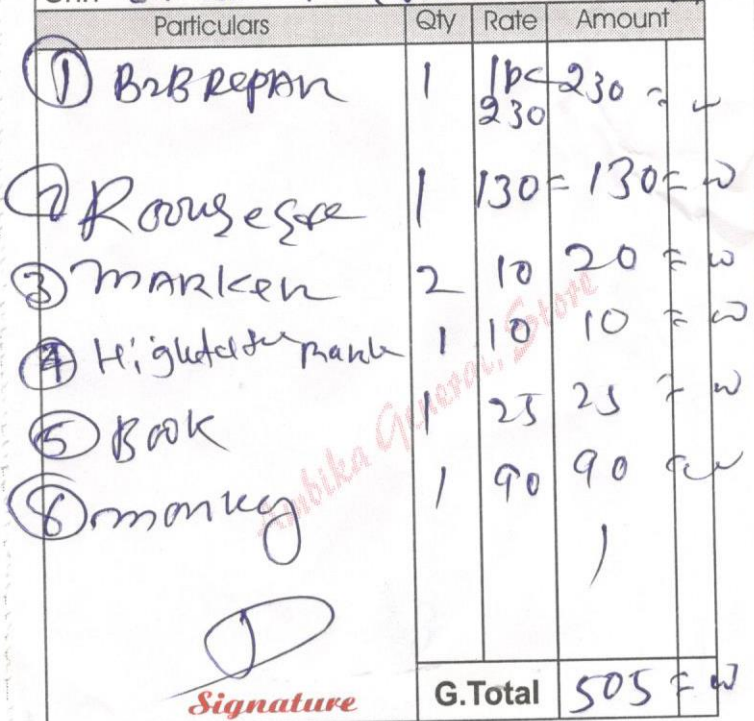 Particulars Qty Rate Amount
① B2B RePAN 1 1pc 230 230 =
② 1 130 = 130 =
③ MARKen 2 10 20 =
④ 1 10 10 =
⑤ BOOK 1 25 25 =
⑥ monkey 1 90 90 =
Ambika General Store
Signature G.Total 505 =